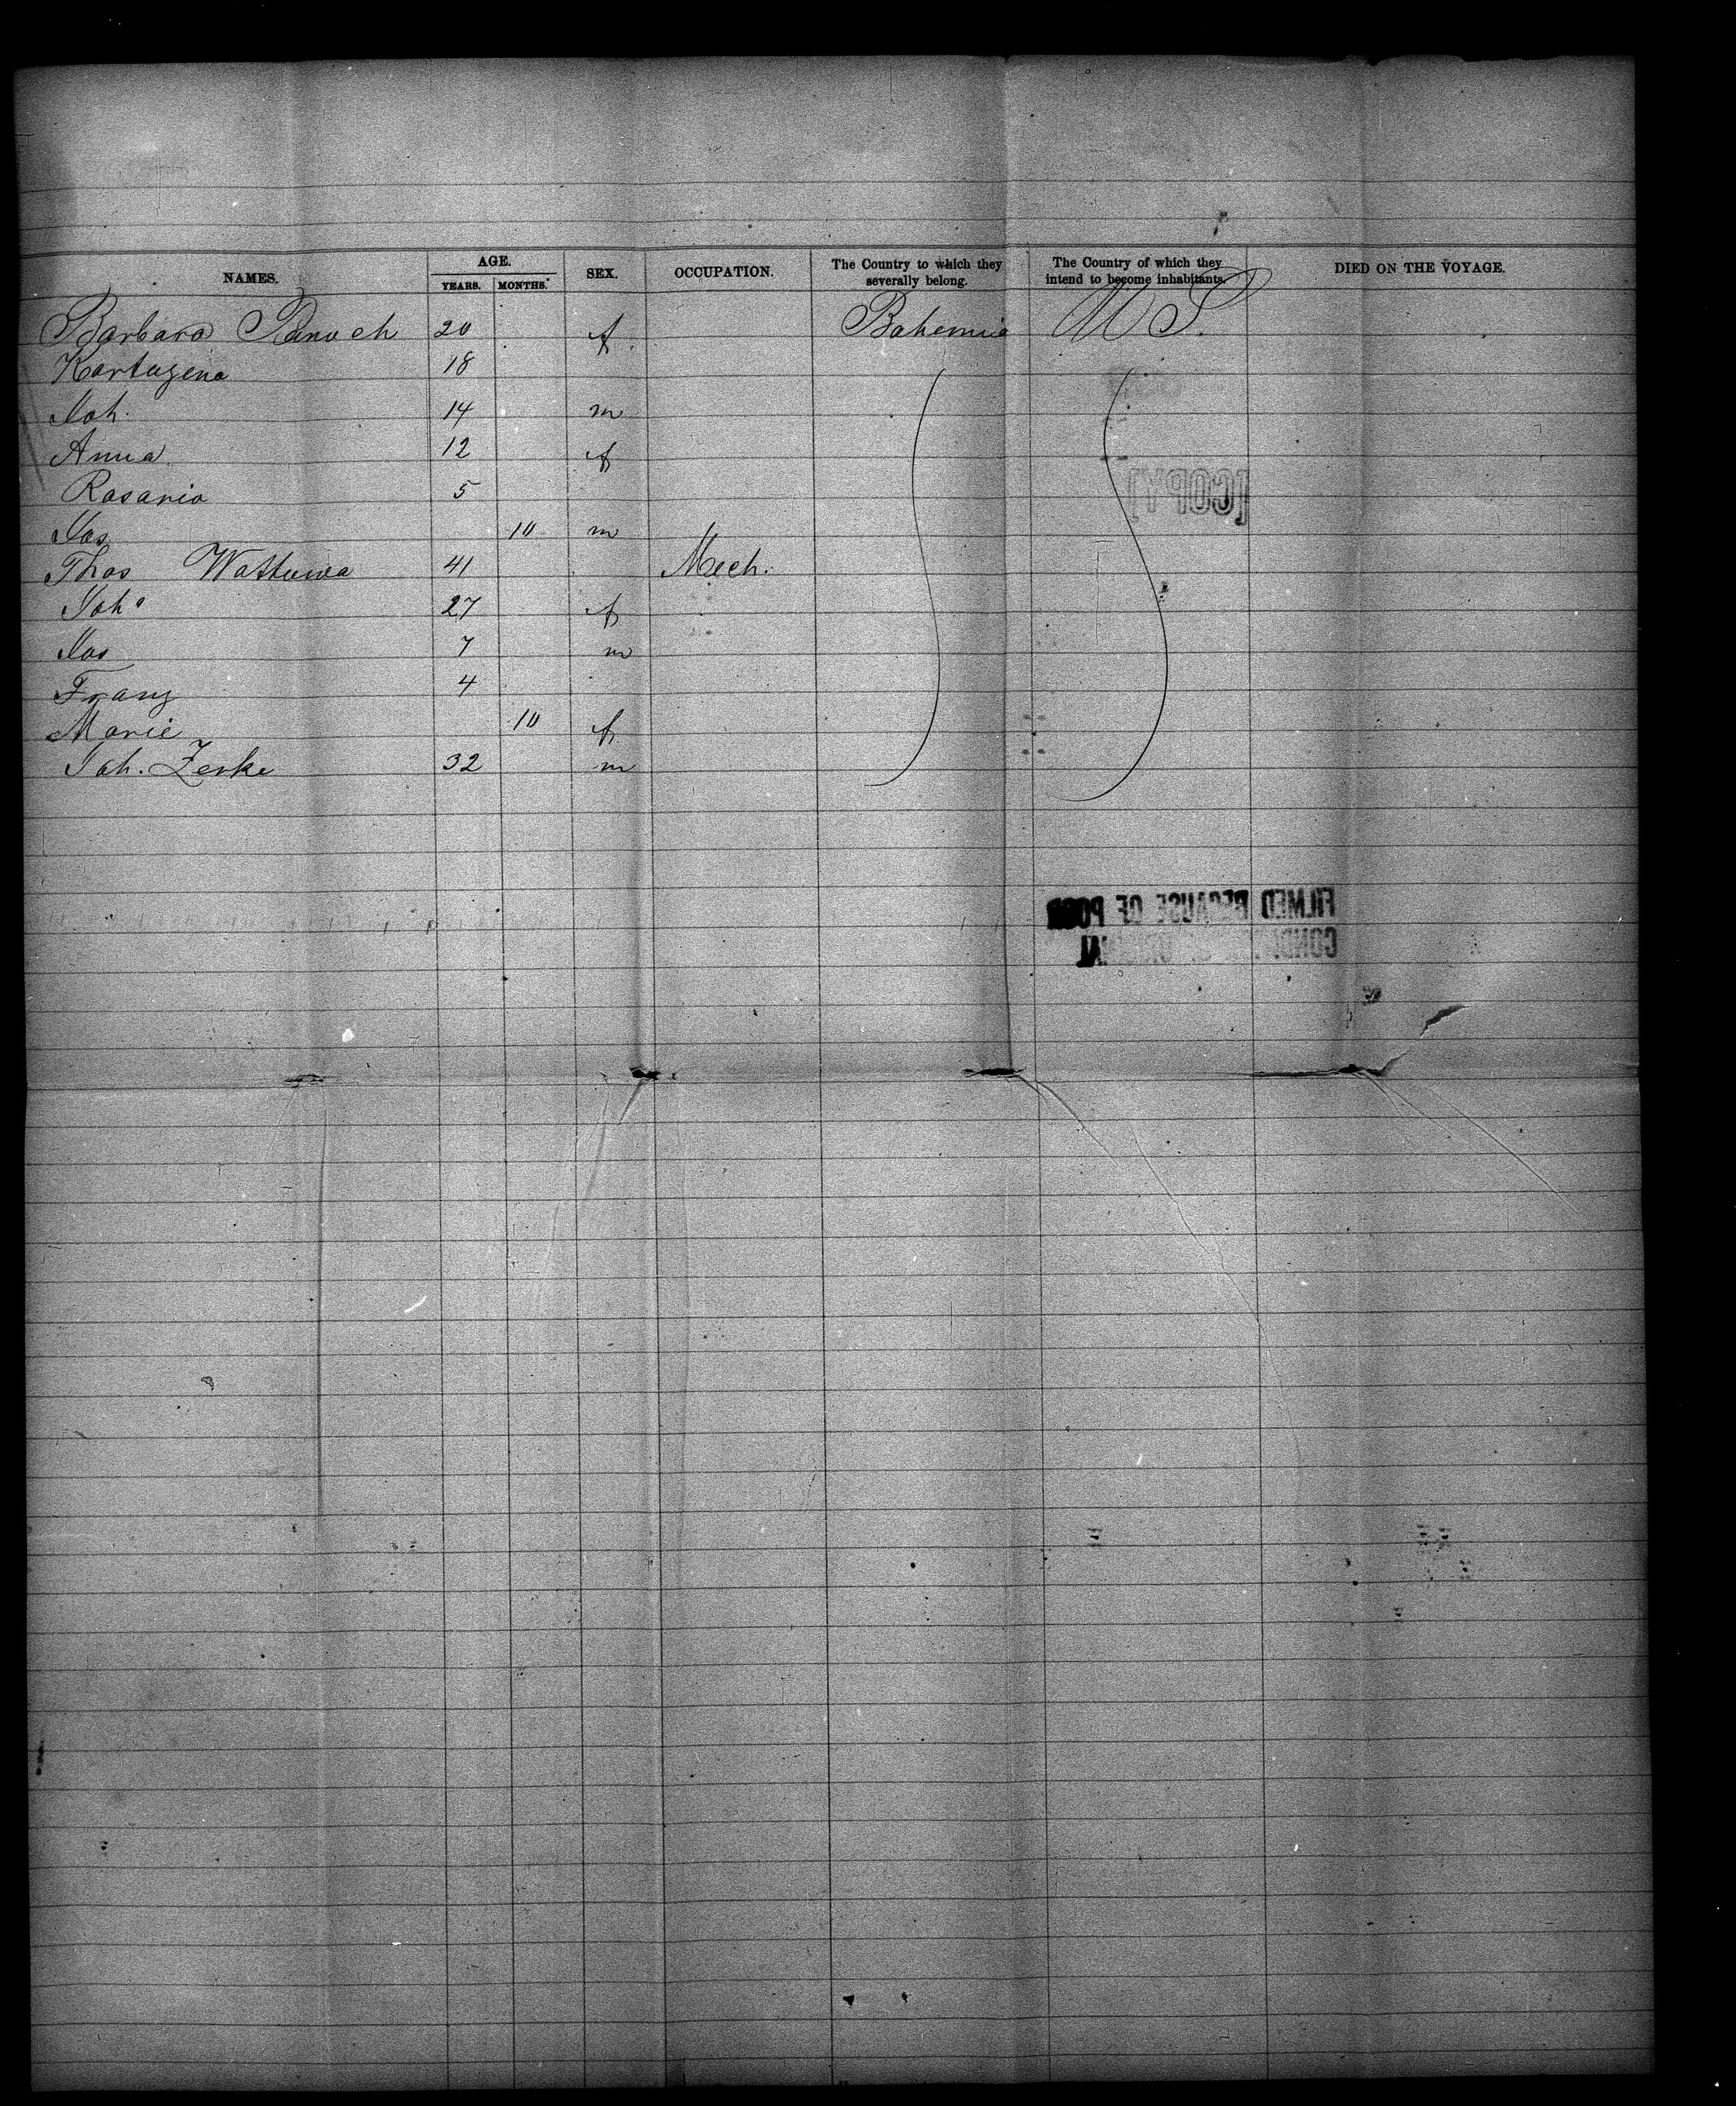 NAMES. AGE. SEX. OCCUPATION. The Country to which they severally belong. The Country of which they intend to become inhabitants. DIED ON THE VOYAGE.
YEARS. MONTHS.
Barbara Panoch 20 f. Bohemia U S.
Kartagena 18
Joh. 14 m
Anna 12 f
Rosario 5
Jos 10 m
[COPY]
Thos 41 Mech.
Joh^a 27 f
Jos 7 m
Franz 4
Marie 10 f
Joh. Zerke 32 m
FILMED BECAUSE OF POOR